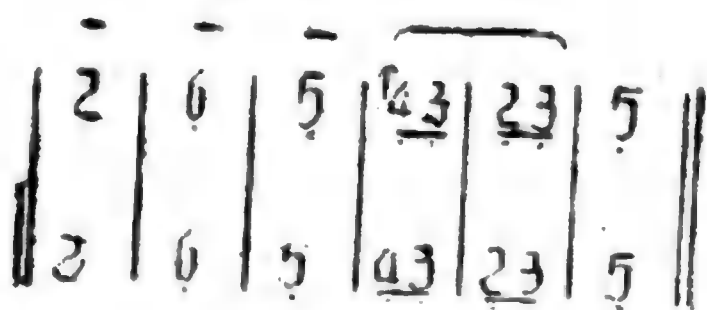 2 | 6 | 5 | 43 | 23 | 5
2 | 6 | 5 | 43 | 23 | 5